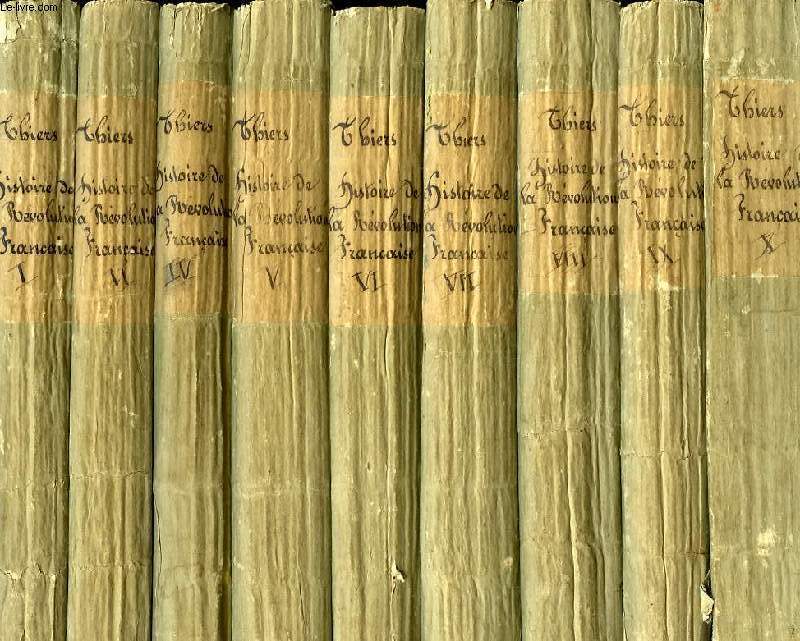 Le-livre.com
Thiers
Histoire de
la Révolution
Française
I
Thiers
Histoire de
la Révolutio
Française
II
Thiers
Histoire de
la Révoluti
Française
IV
Thiers
Histoire de
la Révolution
Française
V
Thiers
Histoire de
la Révolution
Française
VI
Thiers
Histoire de
la Révolution
Française
VII
Thiers
Histoire de
la Révolution
Française
VIII
Thiers
Histoire de
la Révolut
Française
IX
Thiers
Histoire
la Revolu
Françai
X